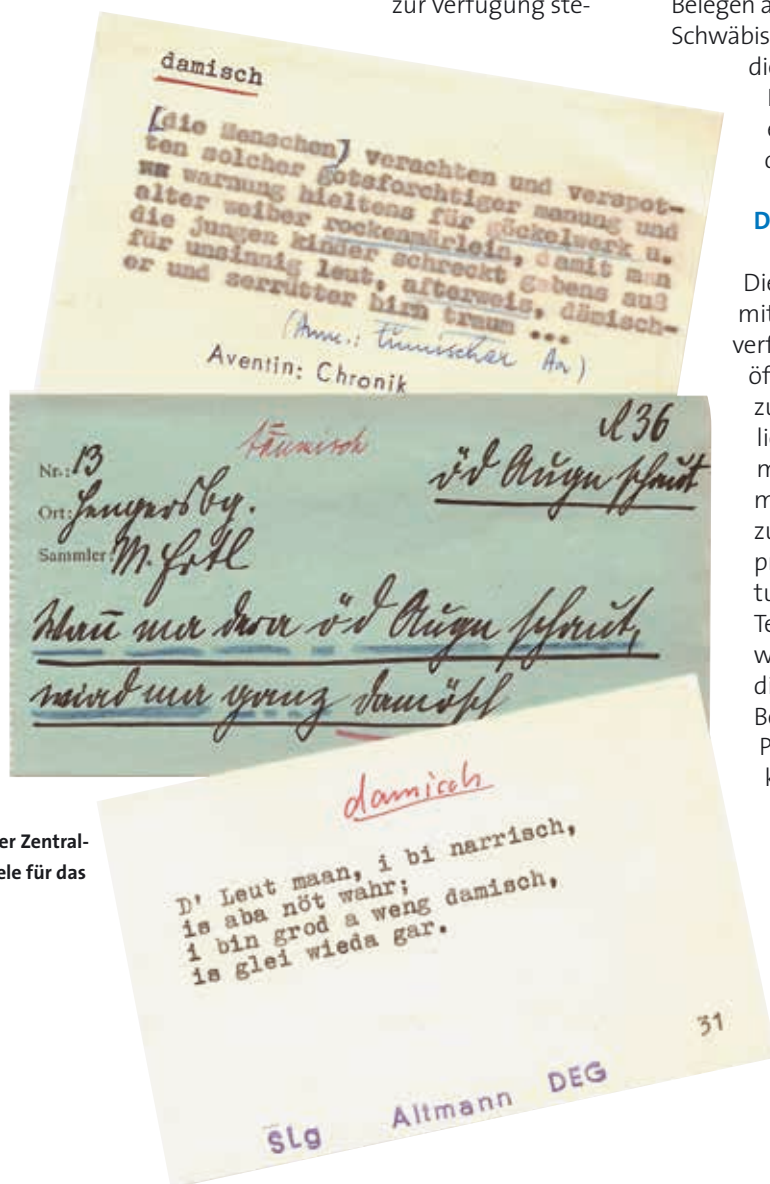 zur Verfügung ste-
Belegen a
Schwäbis
die
D
Die
mit
verf
öf
zu
li
m
m
zu
p
tu
Te
w
d
B
P
k
er Zentral-
ele für das
damisch
[die Menschen] verachten und verspot-
ten solcher gotsforchtiger manung und
warnung hieltens für göckelwerk u.
alter weiber rockenmärlein, damit man
die jungen kinder schreckt gabens auß
für unsinnig leut, afterweis, dämisch-
er und serrütter hirn traum ...
(Anm.: tümischer Aa)
Aventin: Chronik
Nr.: 13
täumisch
A 36
Ort: Hengersbg.
öd Augn schaut
Sammler: M. Ertl
Wan̄ ma dera öd Augn schaut,
wiad ma ganz damösch
damisch
D' Leut maan, i bi narrisch,
is aba nöt wahr;
i bin grod a weng damisch,
is glei wieda gar.
31
SLg Altmann DEG